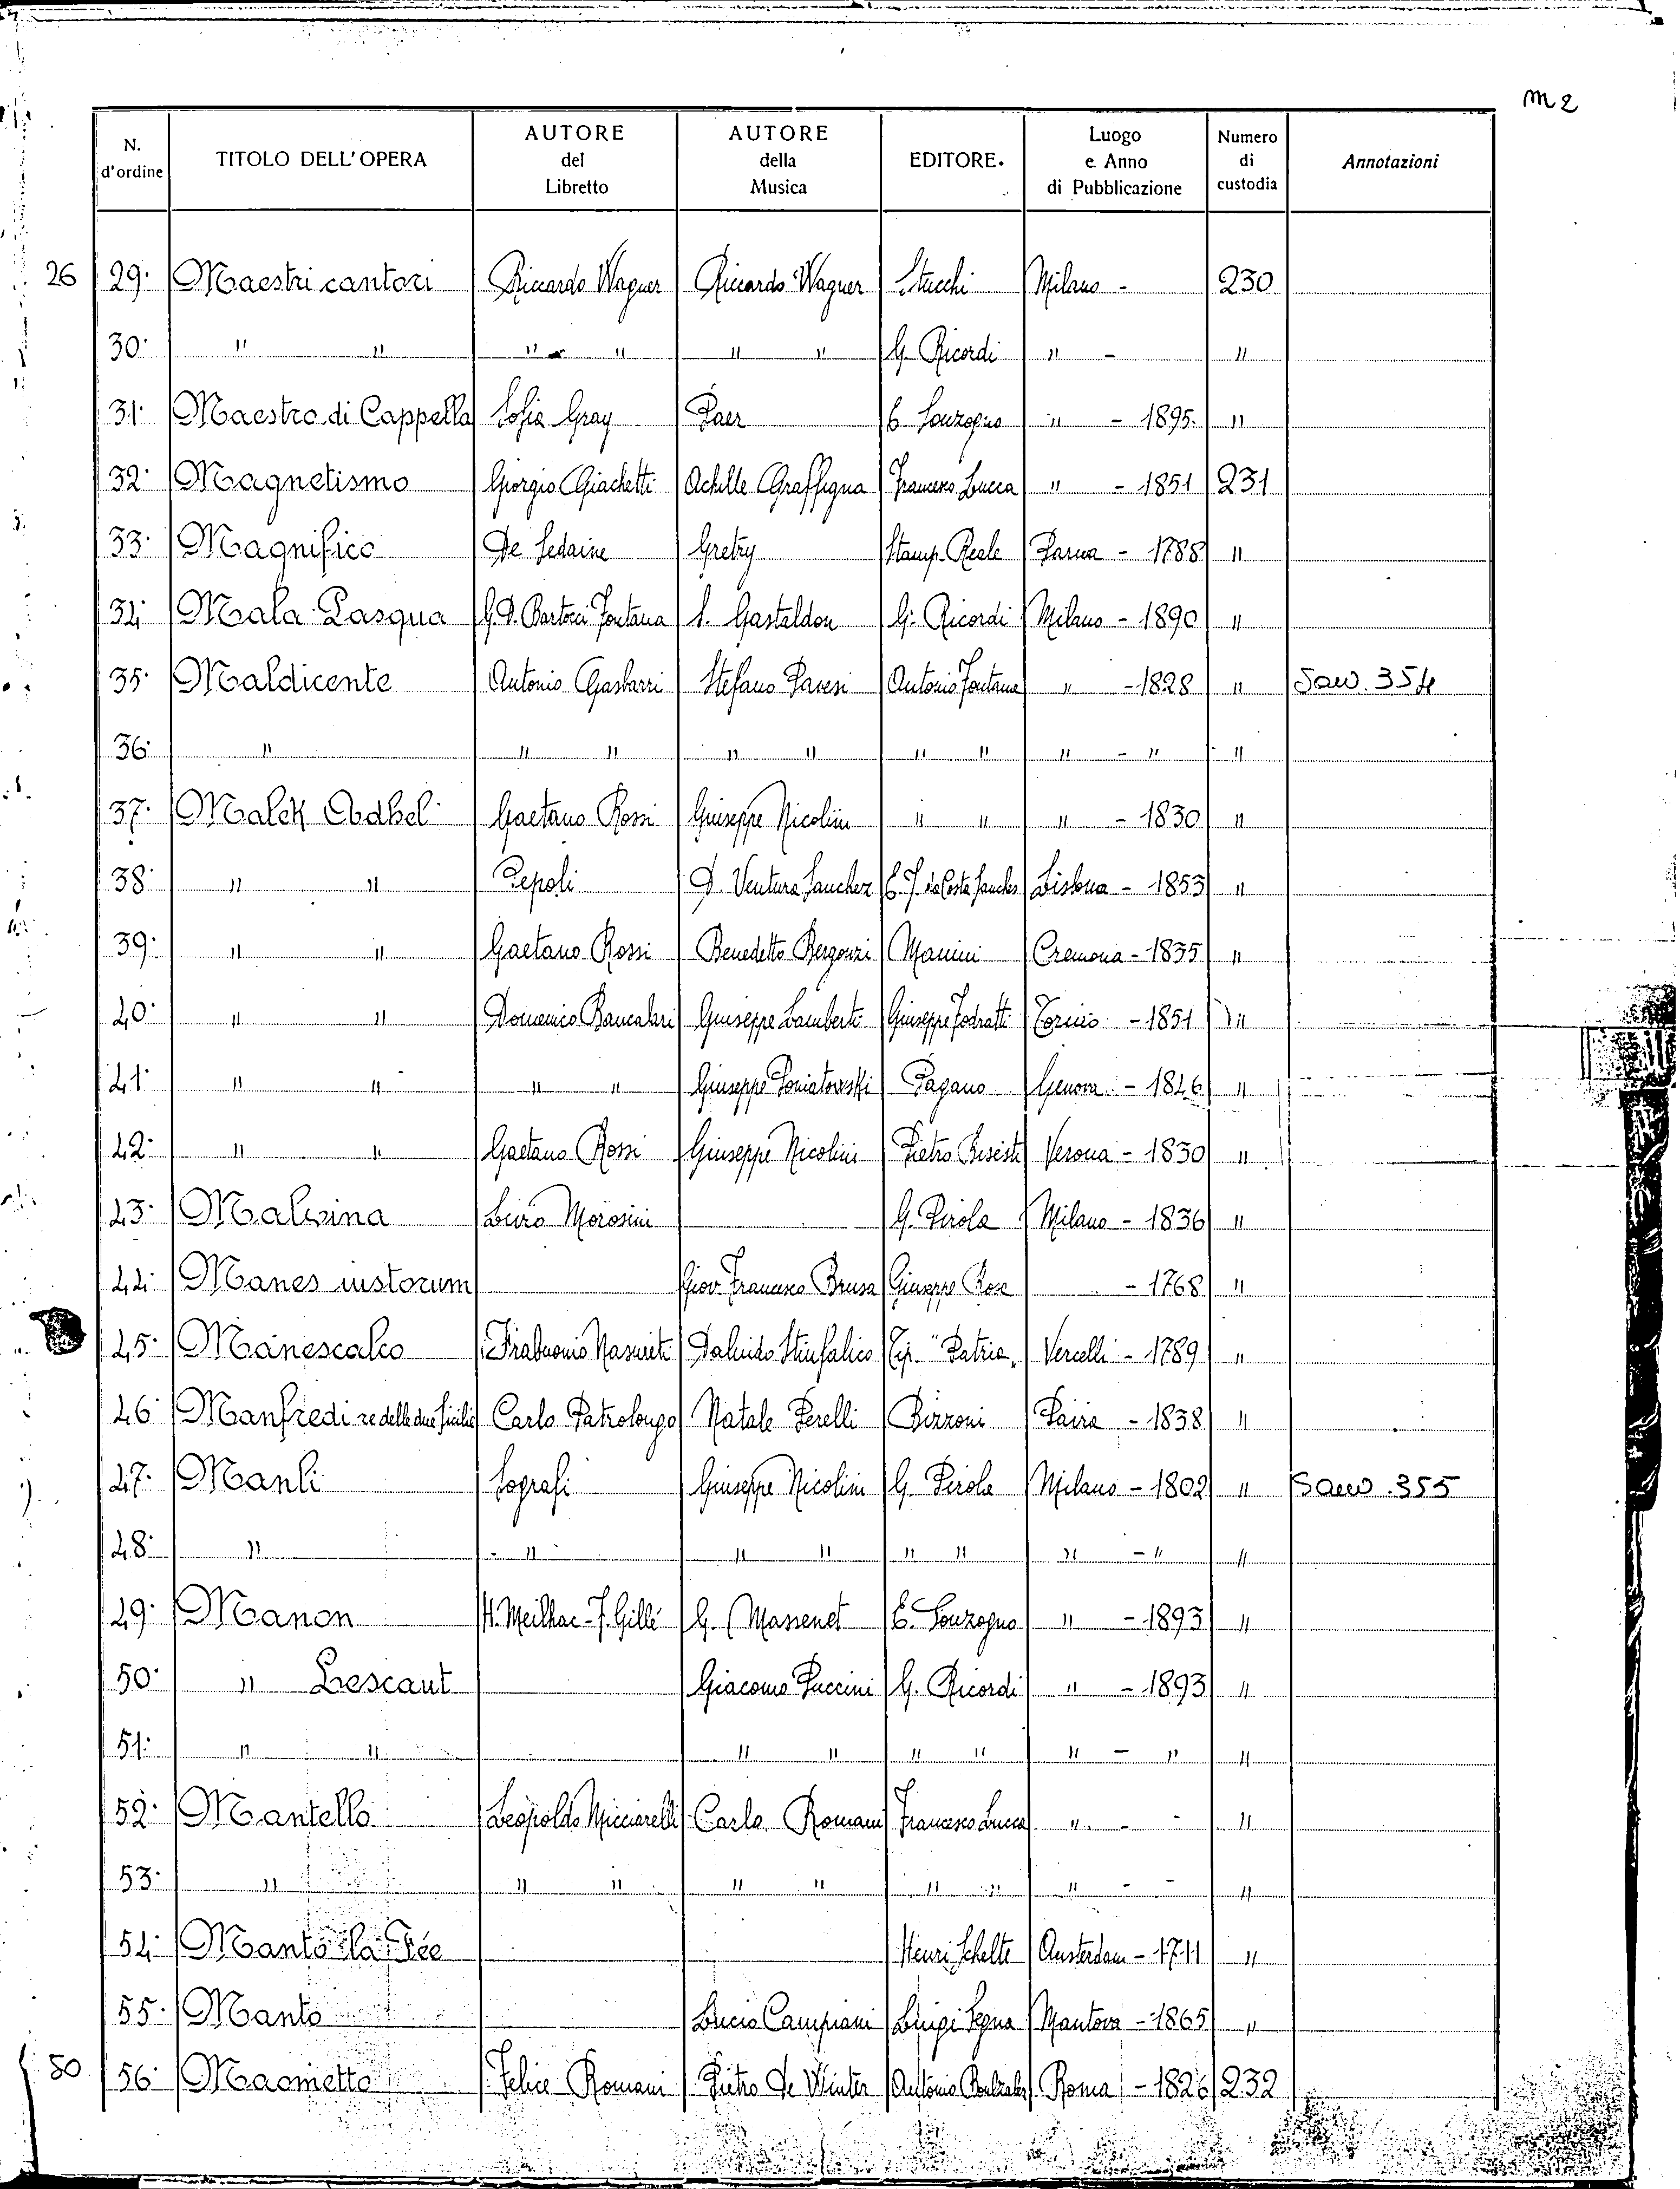 m 2
N. d'ordine | TITOLO DELL'OPERA | AUTORE del Libretto | AUTORE della Musica | EDITORE. | Luogo e. Anno di Pubblicazione | Numero di custodia | Annotazioni
26 29. Maestri cantori Riccardo Wagner Riccardo Wagner Stucchi Milano - 230
30. " " " " " " G. Ricordi " - "
31. Maestro di Cappella Sofia Gray Paer E. Sonzogno " - 1895. "
32. Magnetismo Giorgio Giachetti Achille Graffigna Francesco Lucca " - 1851 231
33. Magnifico De Sedaine Gretry Stamp. Reale Parma - 1788 "
34. Mala Pasqua G. D. Bartocci Fontana S. Gastaldon G. Ricordi Milano - 1890 "
35. Maldicente Antonio Gasbarri Stefano Pavesi Antonio Fontana " - 1828 " Saw. 354
36. " " " " " " " " - " "
37. Malek Adhel Gaetano Rossi Giuseppe Nicolini " " " - 1830 "
38. " " Pepoli D. Ventura Sanchez Lisbona - 1853 "
39. " " Gaetano Rossi Benedetto Bergonzi Manini Cremona - 1835 "
40. " " Domenico Bancalari Giuseppe Lamberti Giuseppe Fodratti Torino - 1851 "
41. " " " " Giuseppe Poniatowski Pagano Genova - 1846 "
42. " " Gaetano Rossi Giuseppe Nicolini Pietro Bisesti Verona - 1830 "
43. Malvina Livio Morosini G. Pirola Milano - 1836 "
44. Manes iustorum Giov. Francesco Brusa Giuseppe Rosa - 1768 "
45. Manescalco Tip. "Patria" Vercelli - 1789 "
46. Manfredi re delle due Sicilie Carlo Patrolongo Natale Perelli Bizzoni Pavia - 1838 "
47. Manli Sografi Giuseppe Nicolini G. Pirola Milano - 1802 " Saw. 355
48. " " " " " " " - " "
49. Manon H. Meilhac - F. Gille G. Massenet E. Sonzogno " - 1893 "
50. " Lescaut Giacomo Puccini G. Ricordi " - 1893 "
51. " " " " " " " - " "
52. Mantello Leopoldo Micciarelli Carlo Romani Francesco Lucca " - - "
53. " " " " " " " " - - "
54. Manto la Fée Henri Schelte Amsterdam - 1711 "
55. Manto Lucio Campiani Luigi Segna Mantova - 1865 "
50 56. Maometto Felice Romani Pietro De Winter Antonio Roma - 1826 232